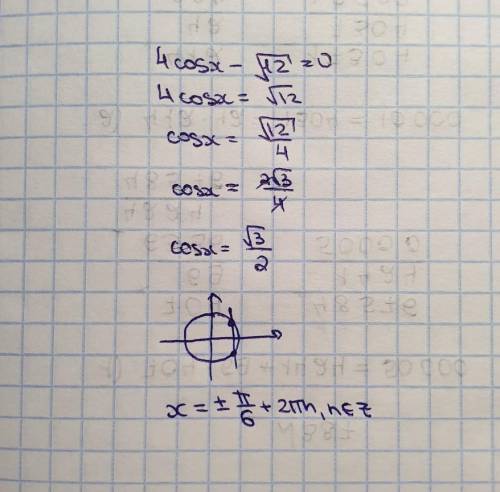 4cosx - √12 = 0
4cosx = √12
cosx = √12/4
cosx = 2√3/4
cosx = √3/2
x = ± π/6 + 2πn, n∈Z